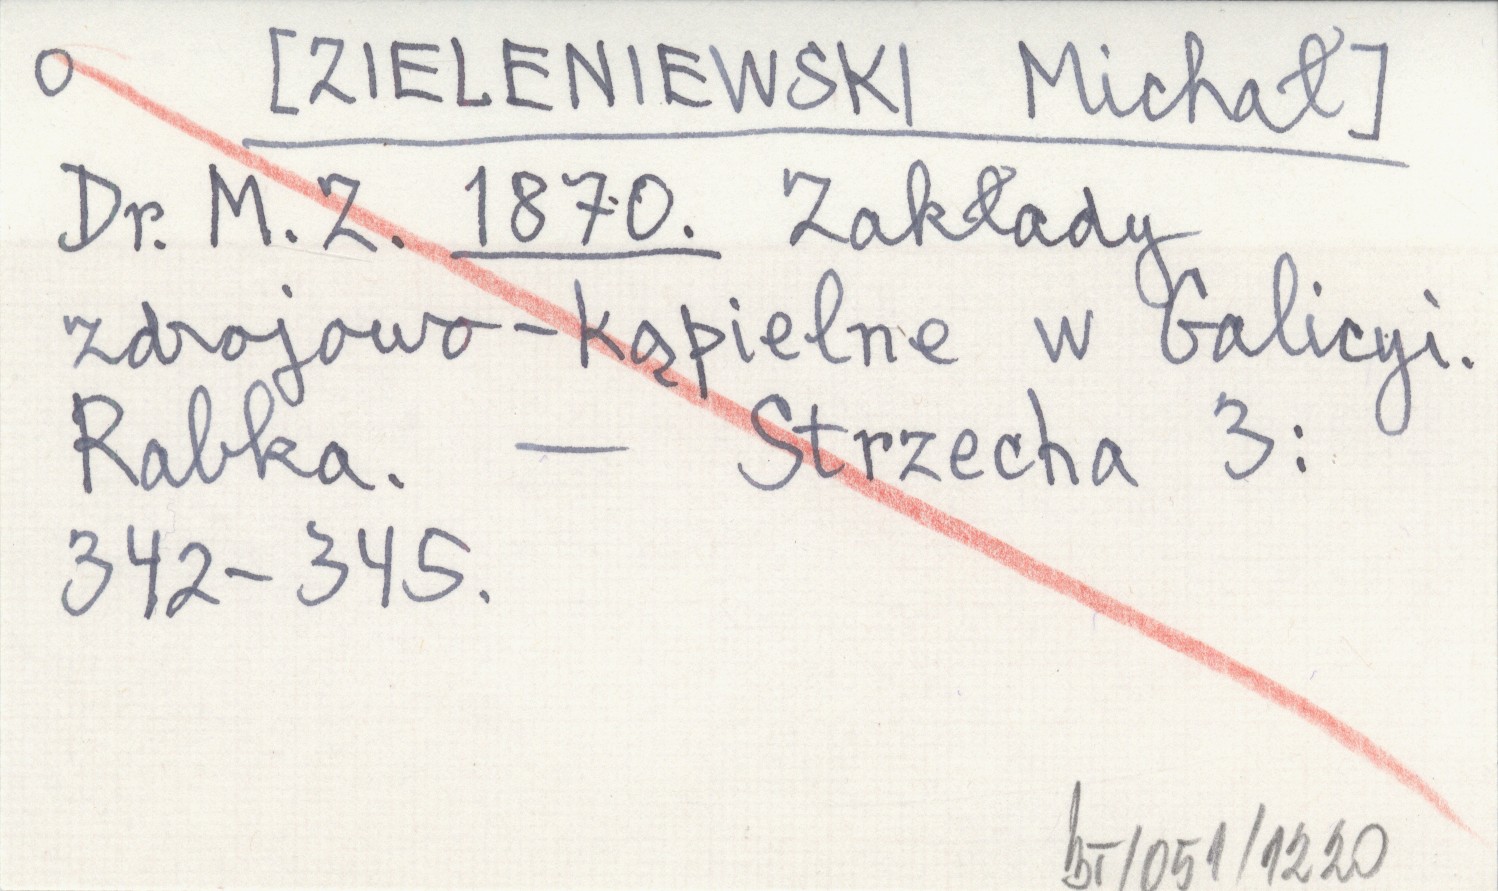 o [ZIELENIEWSKI Michał]
Dr. M. Z. 1870. Zakłady
zdrojowo-kąpielne w Galicyi.
Rabka. — Strzecha 3:
342-345.
/051/1220